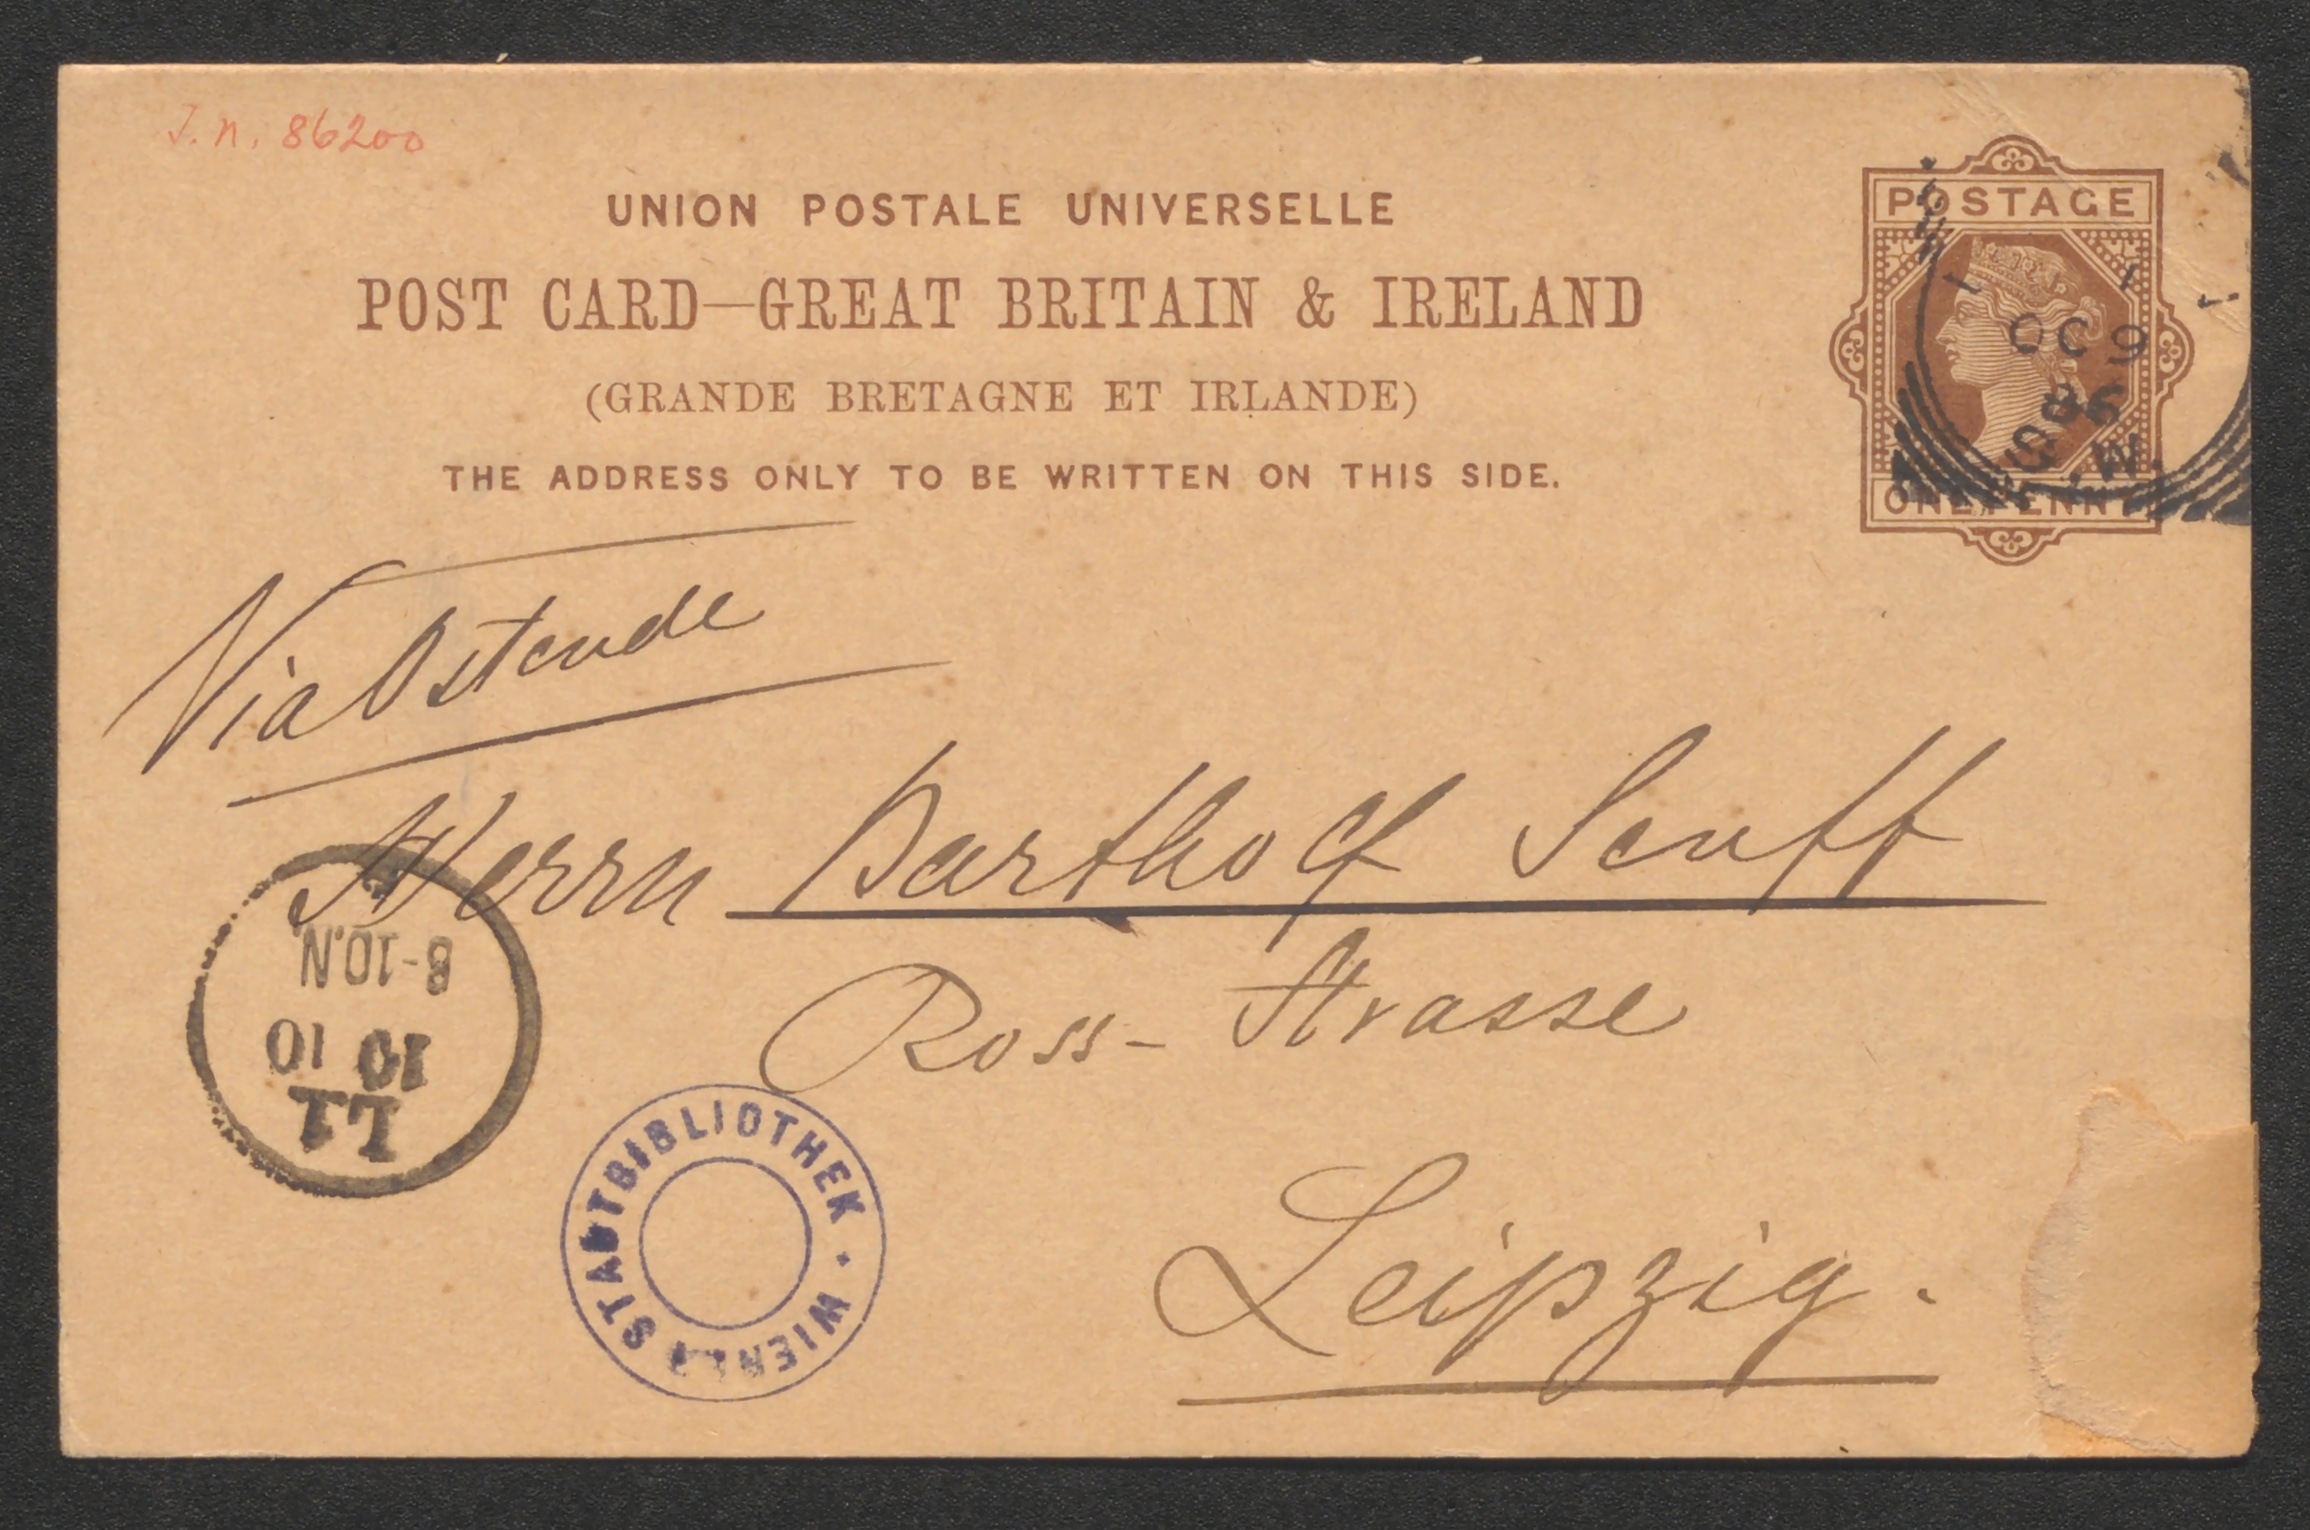 J. N. 86200
UNION POSTALE UNIVERSELLE
POST CARD—GREAT BRITAIN & IRELAND
(GRANDE BRETAGNE ET IRLANDE)
THE ADDRESS ONLY TO BE WRITTEN ON THIS SIDE.
POSTAGE
ONE PENNY
OC 9
86
S.W.
Via Ostende
Herrn Bartholf Senff
Ross-Strasse
Leipzig.
8-10.N.
10 10
L1
STADTBIBLIOTHEK · WIENER